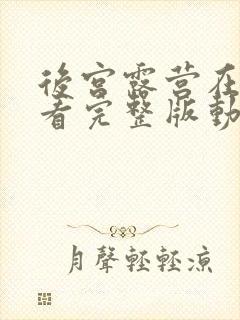 後宮露营在
看完整版動
月聲輕輕涼